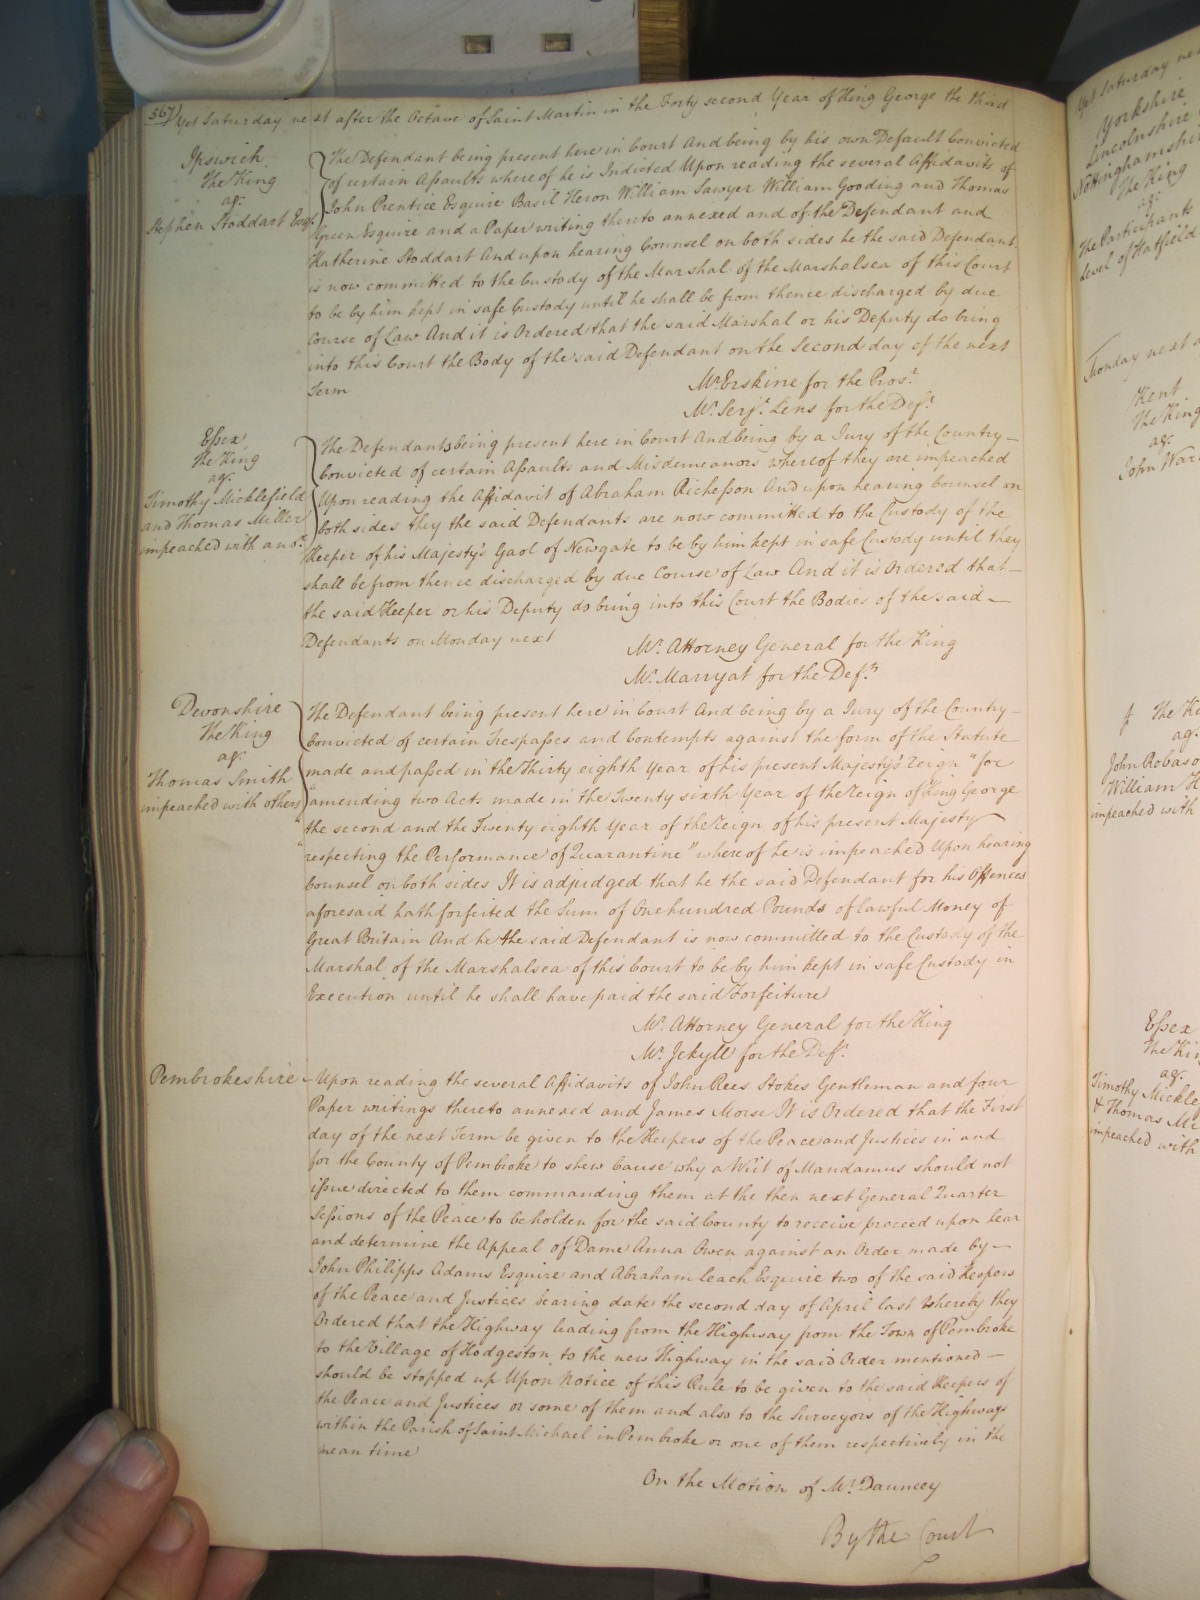 567) Yet Saturday next after the Octave of Saint Martin in the Forty second Year of King George the third
Ipswich
The King
agt
Stephen Stoddart Esqr
The Defendant being present here in Court And being by his own Default Convicted
of certain Assaults whereof he is Indicted Upon reading the several Affidavits of
John Prentice Esquire Basil Heron William Sawyer William Gooding and Thomas
Green Esquire and a Paper writing thereto annexed and of the Defendant and
Katherine Stoddart And upon hearing Counsel on both sides he the said Defendant
is now committed to the Custody of the Marshal of the Marshalsea of this Court
to be by him kept in safe Custody until he shall be from thence discharged by due
Course of Law And it is Ordered that the said Marshal or his Deputy do bring
into this Court the Body of the said Defendant on the Second day of the next
Term
Mr Erskine for the Prosr
Mr Serjt Lens for the Deft
Essex
The King
agt
Timothy Micklefield
and Thomas Miller
impeached with anor
The Defendants being present here in Court And being by a Jury of the Country
Convicted of certain Assaults and Misdemeanors whereof they are impeached
Upon reading the Affidavit of Abraham Richesson And upon hearing Counsel on
both sides they the said Defendants are now committed to the Custody of the
Keeper of his Majesty's Gaol of Newgate to be by him kept in safe Custody until they
shall be from thence discharged by due Course of Law And it is Ordered that
the said Keeper or his Deputy do bring into this Court the Bodies of the said
Defendants on Monday next
Mr Attorney General for the King
Mr Marryat for the Defts
Devonshire
The King
agt
Thomas Smith
impeached with others
The Defendant being present here in Court And being by a Jury of the Country
Convicted of certain Trespasses and Contempts against the form of the Statute
made and passed in the Thirty eighth Year of his present Majesty's reign "for
"amending two Acts made in the Twenty sixth Year of the Reign of King George
the second and the Twenty eighth Year of the Reign of his present Majesty
"respecting the Performance of Quarantine" whereof he is impeached Upon hearing
Counsel on both sides It is adjudged that he the said Defendant for his Offences
aforesaid hath forfeited the Sum of One hundred Pounds of lawful Money of
Great Britain And he the said Defendant is now committed to the Custody of the
Marshal of the Marshalsea of this Court to be by him kept in safe Custody in
Execution until he shall have paid the said Forfeiture
Mr Attorney General for the King
Mr Jekyll for the Deft
Pembrokeshire
Upon reading the several Affidavits of John Rees Stokes Gentleman and four
Paper writings thereto annexed and James Morse It is Ordered that the First
day of the next Term be given to the Keepers of the Peace and Justices in and
for the County of Pembroke to shew Cause why a Writ of Mandamus should not
issue directed to them commanding them at the then next General Quarter
Sessions of the Peace to be holden for the said County to receive proceed upon hear
and determine the Appeal of Dame Anna Owen against an Order made by
John Philipps Adams Esquire and Abraham Leach Esquire two of the said Keepers
of the Peace and Justices bearing date the second day of April last Whereby they
Ordered that the Highway leading from the Highway from the Town of Pembroke
to the Village of Hodgeston to the new Highway in the said Order mentioned
should be stopped up Upon Notice of this Rule to be given to the said Keepers of
the Peace and Justices or some of them and also to the Surveyors of the Highways
within the Parish of Saint Michael in Pembroke or one of them respectively in the
mean time
On the Motion of Mr Dauncey
By the Court
Yet Saturday
Yorkshire
Lincolnshire
The King
agt
The Participants
Level of Hatfield
Monday next
Kent
The King
agt
John
The
agt
John
William
impeached with
Essex
The
agt
Timothy
& Thomas
impeached with